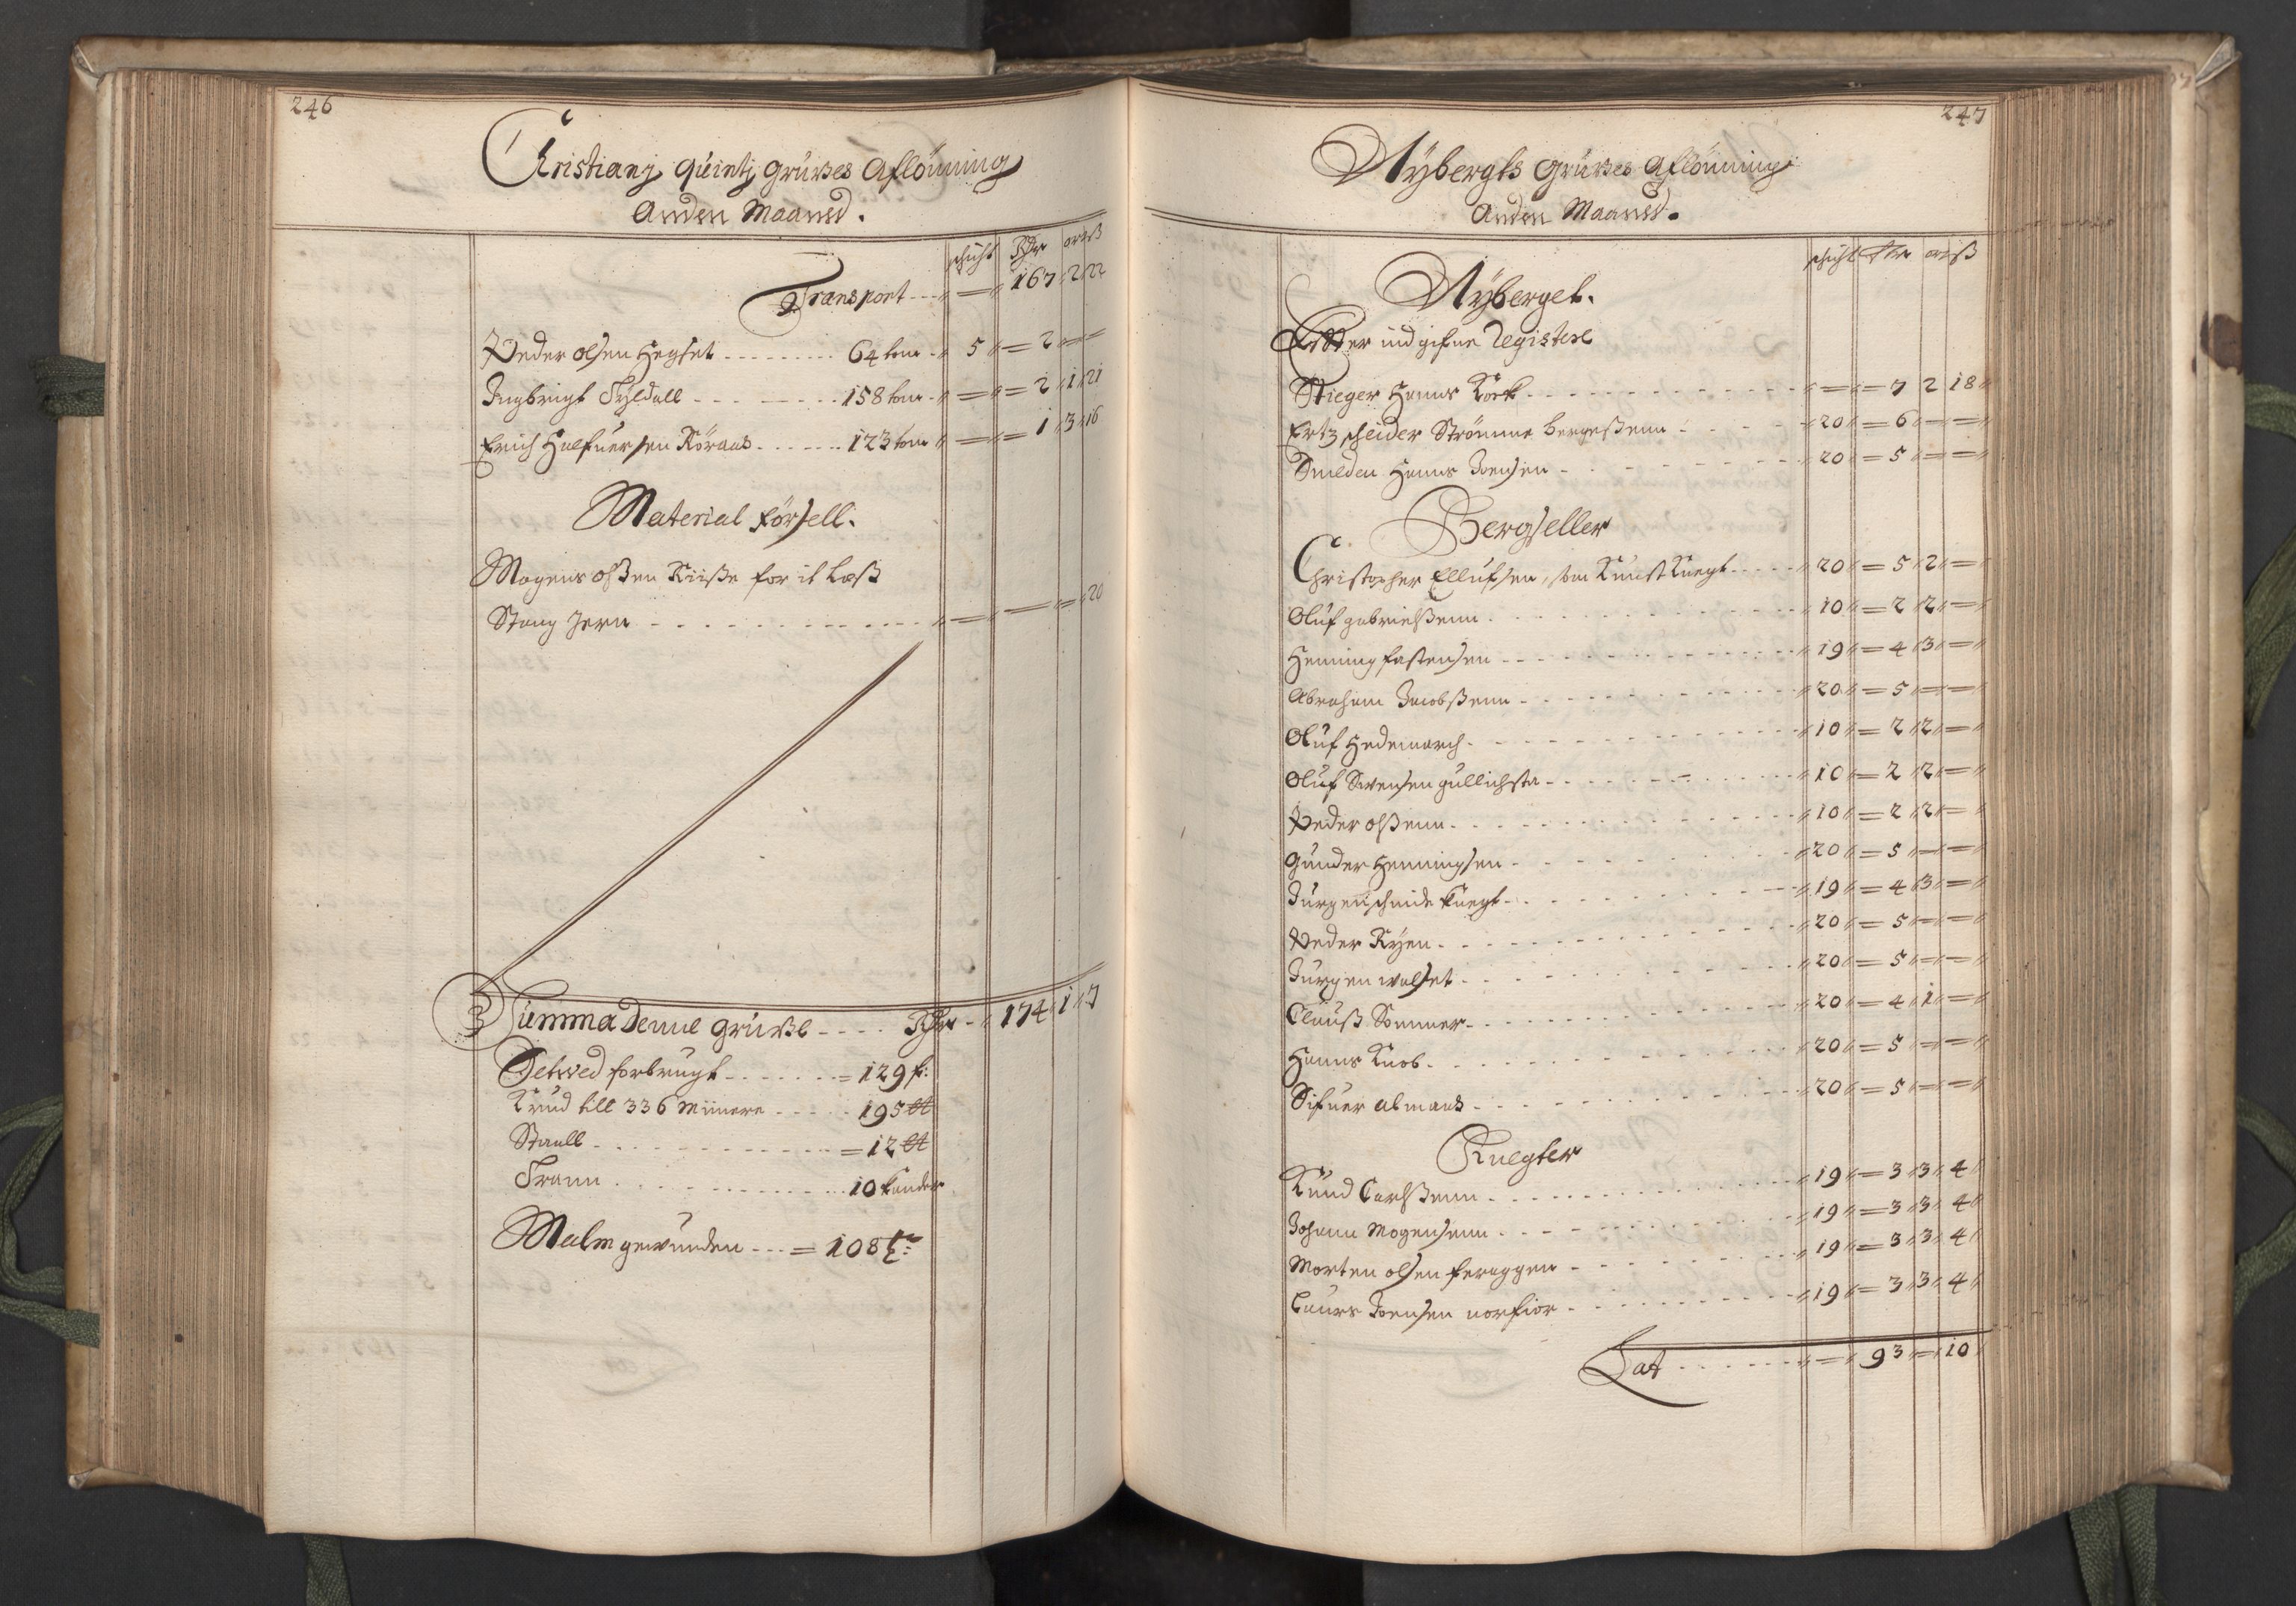 246
Cristianj Quintj Grubes Aflönning
Anden Maaned.
schicht Rdr ort ß
Transport - - - 167 2 22
Peder olsen Hegset - - - - 64 tour - 5 = 2 = =
Ingbrigt Tyldall - - - - 158 tour - = = 2 1 21
Erich Halfuersen Röraas - - - - 123 tour = = 1 3 16
Material försell.
Mogens olßen Riiße for it Læß
Stang Jern - - - - = = = 20
Summa Denne Grube - - - - Rdr - 174 1 7
Setwed forbrugt - - - - = 129 f:
Krud till 336 Miinere - - - - 195 ℔
Staall - - - - = 12 ℔
Trann - - - - 10 kander
Malm gewunden - - - = 108 t:
247
Nÿbergts Grubes Aflönning
Anden Maaned.
schicht Rdr ort ß
Nÿberget.
Efter indgifne Registere
Stieger Hanns Kock - - - - = = 7 2 18
Ertzscheider Strömme bergeßenn - - - 20 = 6 = =
Smeden Hanns Joensen - - - - 20 = 5 = =
Bergseller
Christopher Ellufsen, som Kunst Knegt - - - 20 = 5 2 =
Oluf gabrielßenn - - - - 10 = 2 2 =
Henning fastensen - - - - 19 = 4 3 =
Abraham Jacobßenn - - - - 20 = 5 = =
Oluf Hedemarch - - - - 10 = 2 2 =
Oluf Swensen gullichsta - - - - 10 = 2 2 =
Peder olßenn - - - - 10 = 2 2 =
Gunder Henningsen - - - - 20 = 5 = =
Jurgen schmide knegt - - - - 19 = 4 3 =
Peder Ryen - - - - 20 = 5 = =
Jurgen walset - - - - 20 = 5 = =
Clauß Sommer - - - - 20 = 4 1 =
Hanns Knob - - - - 20 = 5 = =
Sifuer almaas - - - - 20 = 5 = =
Knegter
Knud Carlßenn - - - - 19 = 3 3 4
Johann Mogensenn - - - 19 = 3 3 4
Morten olsen feraggen - - - - 19 = 3 3 4
Laurs Joensen norfior - - - - 19 = 3 3 4
Lat - - - - = 93 = 10